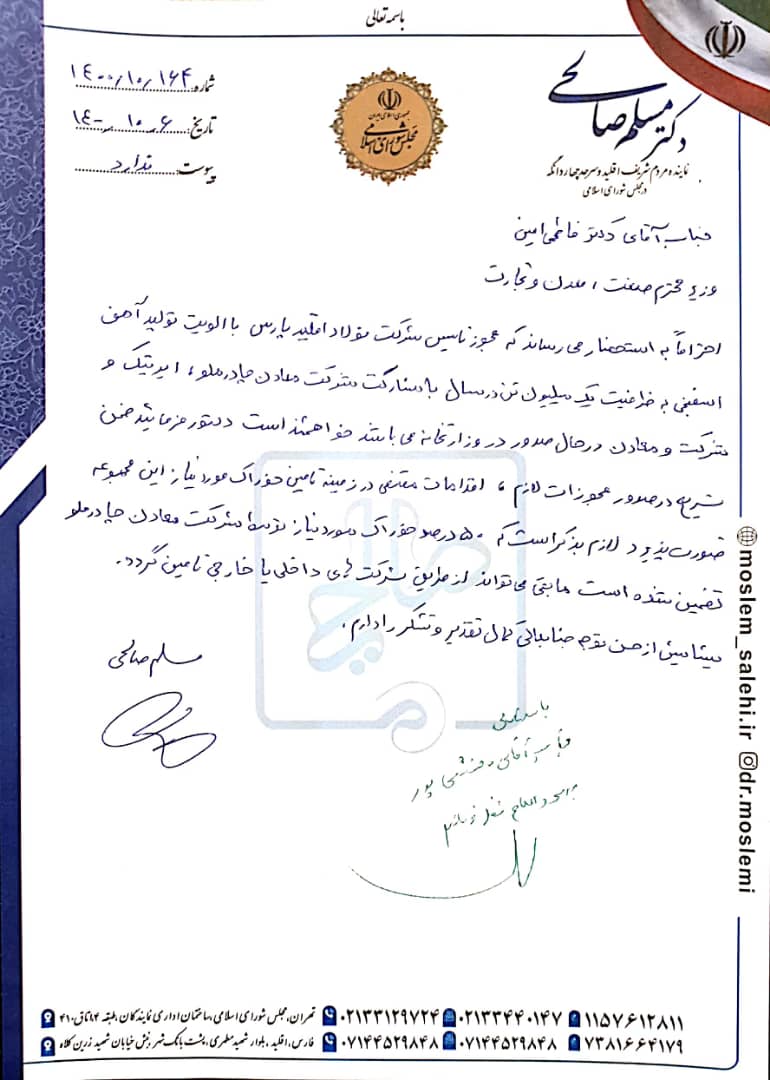 باسمه تعالی
شماره: ۱۴۰۰/۱۰/۱۶۴
تاریخ: ۱۴۰۰-۱۰-۶
پیوست: ندارد
جمهوری اسلامی ایران
مجلس شورای اسلامی
دکتر مسلم صالحی
نماینده مردم شریف اقلید و سرحد چهاردانگه
در مجلس شورای اسلامی
جناب آقای دکتر فاطمی امین
وزیر محترم صنعت، معدن و تجارت
احتراماً به استحضار می رساند که مجوز تاسیس شرکت فولاد اقلید پارس با الویت تولید آهن
اسفنجی به ظرفیت یک میلیون تن در سال با مشارکت شرکت معادن چادرملو، ایرتیک و
شرکت و معادن در حال صدور در وزارتخانه می باشد خواهشمند است دستور فرمائید ضمن
تسریع در صدور مجوزات لازم، اقدامات مقتضی در زمینه تامین خوراک مورد نیاز این مجموعه
صورت پذیرد لازم بذکر است که ۵۰ درصد خوراک مورد نیاز توسط شرکت معادن چادرملو
تضمین شده است مابقی می تواند از طریق شرکت های داخلی یا خارجی تامین گردد.
پیشاپیش از حسن توجه جنابعالی کمال تقدیر و تشکر را دارم.
مسلم صالحی
باسمه تعالی
جناب آقای
moslem_salehi.ir
dr.moslemi
تهران، مجلس شورای اسلامی، ساختمان اداری نمایندگان، طبقه ۴ اتاق ۴۱۰ ۰۲۱۳۳۱۲۹۷۲۴ ۰۲۱۳۳۴۴۰۱۴۷ ۱۱۵۷۶۱۲۸۱۱
فارس، اقلید، بلوار شهید مطهری، پشت بانک شهر، نبش خیابان شهید زرین کلاه ۰۷۱۴۴۵۲۹۸۴۸ ۰۷۱۴۴۵۲۹۸۴۸ ۷۳۸۱۶۶۴۱۷۹